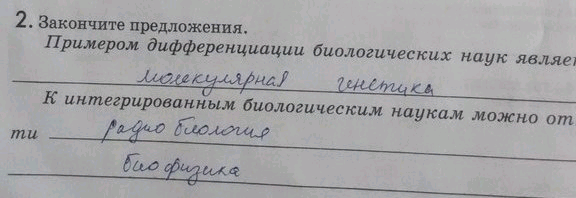 2. Закончите предложения.
Примером дифференциации биологических наук являе
молекулярная генетика
К интегрированным биологическим наукам можно от
ти радио биология
биофизика